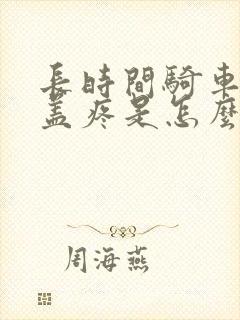 長時間騎車
蓋疼是怎麼
周海燕